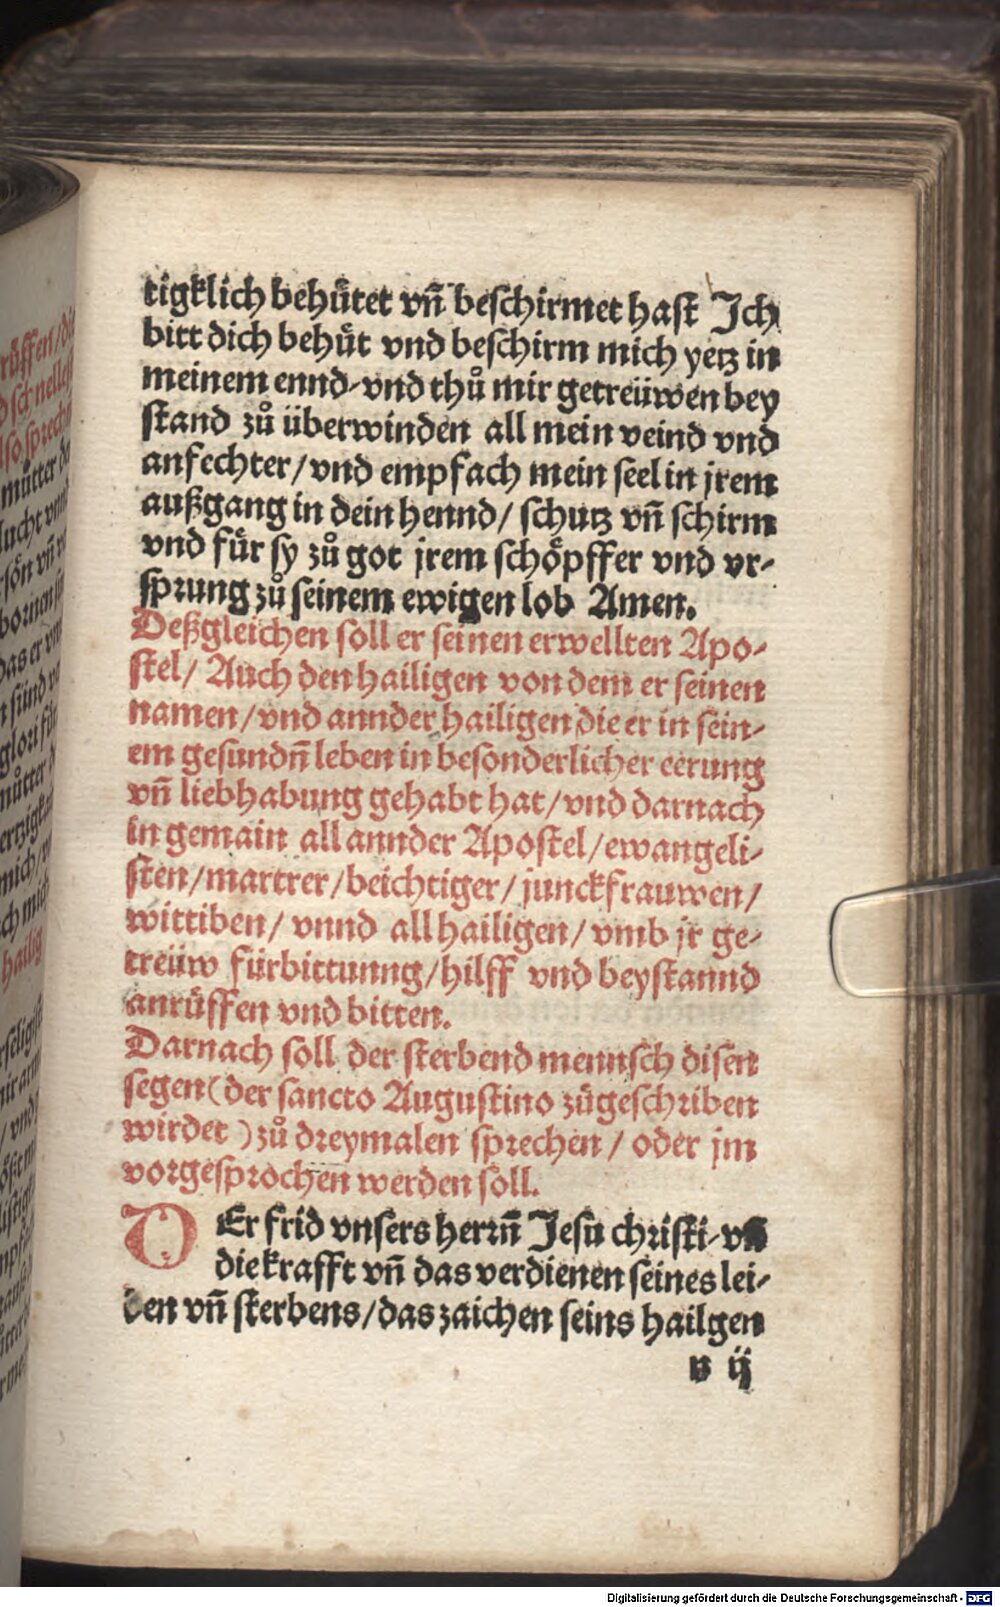 tigklich behuͤtet vñ beschirmet hast Ich
bitt dich behuͤt vnd beschirm mich yetz in
meinem ennd-vnd thuͦ mir getreüwen bey
stand zuͦ überwinden all mein veind vnd
anfechter/vnd empfach mein seel in jrem
außgang in dein hennd/ schutz vñ schirm
vnd fuͤr sy zuͦ got jrem schoͤpffer vnd vr-
sprung zuͦ seinem ewigen lob Amen.
Deßgleichen soll er seinen erwellten Apo-
stel/ Auch den hailigen von dem er seinen
namen/vnd annder hailigen die er in sein-
em gesundñ leben in besonderlicher eerung
vñ liebhabung gehabt hat/vnd darnach
in gemain all annder Apostel/ewangeli-
sten/martrer/beichtiger/junckfrauwen/
wittiben/ vnnd all hailigen/ vmb jr ge-
treüw fürbittunng/hilff vnd beystannd
anruͤffen vnd bitten.
Darnach soll der sterbend mennsch disen
segen(der sancto Augustino zuͦgeschriben
wirdet) zuͦ dreymalen sprechen/ oder jm
vorgesprochen werden soll.
DEr frid vnsers herrñ Jesu christi-vñ
die krafft vñ das verdienen seines lei-
den vñ sterbens/das zaichen seins hailgen
v ij
Digitalisierung gefördert durch die Deutsche Forschungsgemeinschaft - DFG